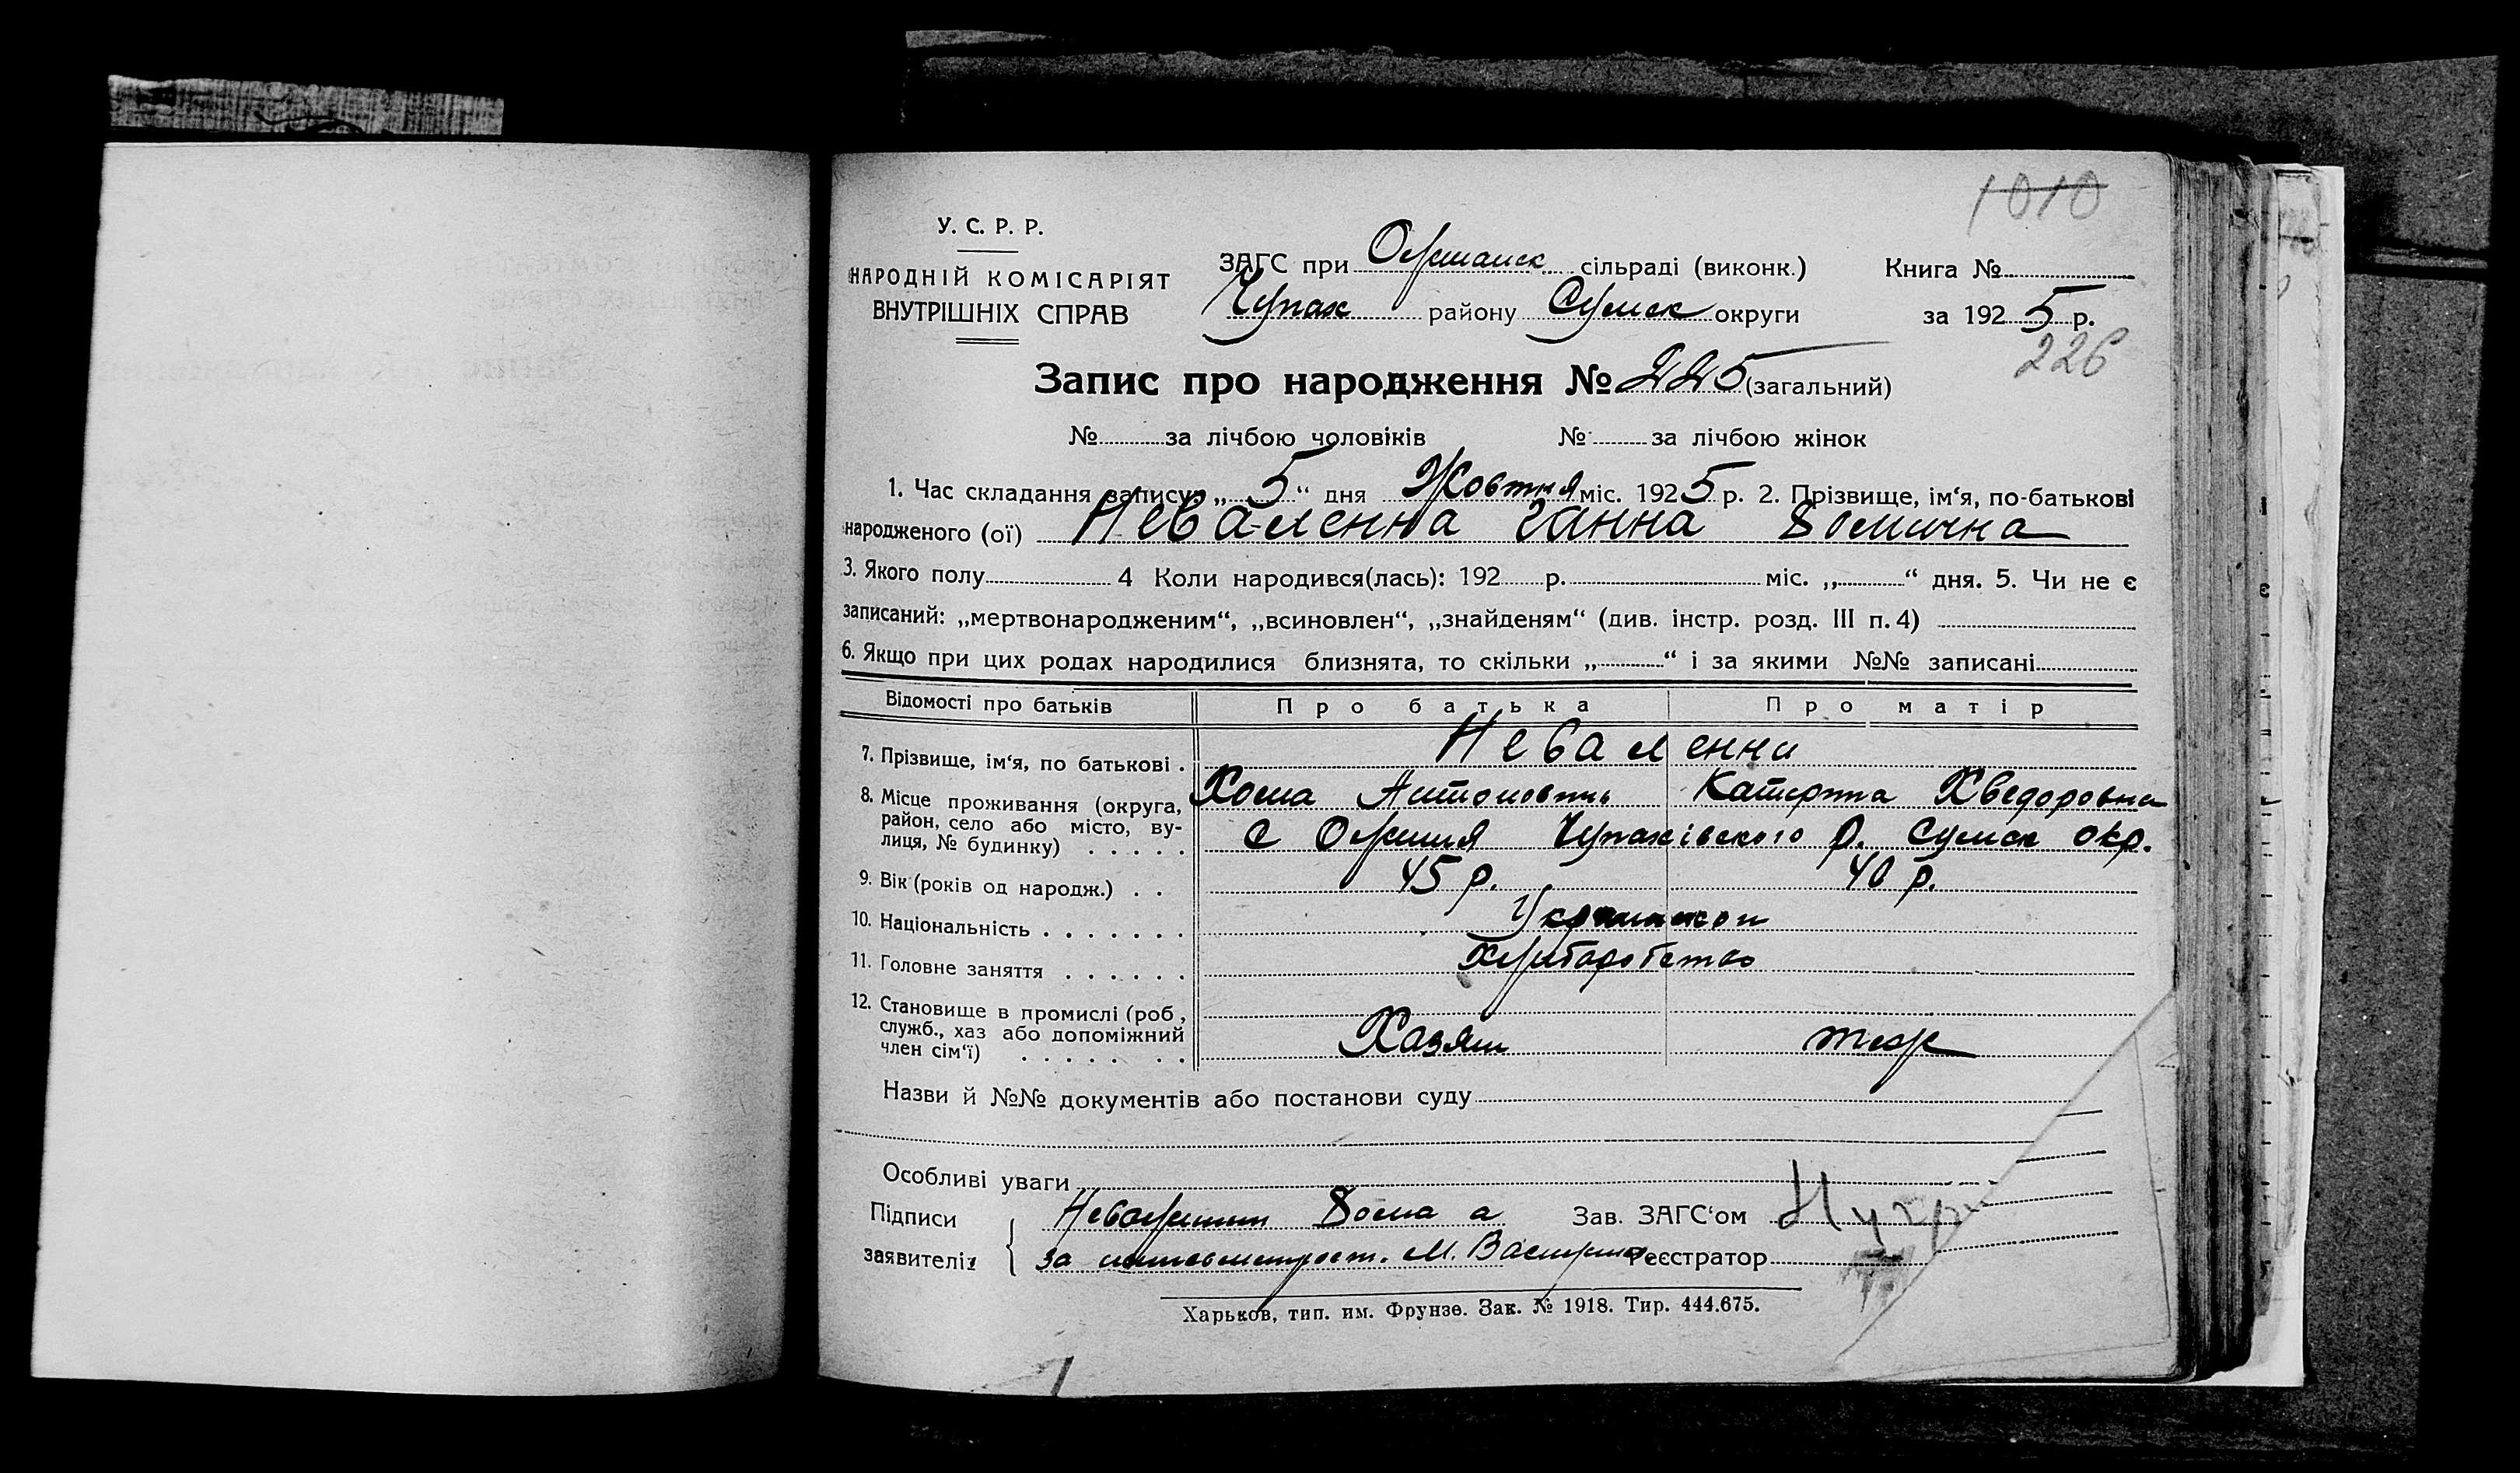 1010
У. С. Р. Р.
НАРОДНІЙ КОМІСАРІЯТ
ВНУТРІШНІХ СПРАВ
ЗАГС при сільраді (виконк.)
Чупах району Сумск округи
Книга №
за 1925 р.
226
Запис про народження № 225 (загальний)
№ за лічбою чоловіків № за лічбою жінок
1. Час складання запису: „5“ дня Жовтня міс. 1925 р. 2. Прізвище, ім‘я, по-батькові
народженого (ої) Ганна Хомична
3. Якого полу 4 Коли народився(лась): 192 р. міс. „ “ дня. 5. Чи не є
записаний: „мертвонародженим“, „всиновлен“, „знайденям“ (див. інстр. розд. III п. 4)
6. Якщо при цих родах народилися близнята, то скільки „ “ і за якими №№ записані
Відомості про батьків Про батька Про матір
7. Прізвище, ім‘я, по батькові .
Хома Антонович Катерина Хведоровна
8. Місце проживання (округа, район, село або місто, вулиця, № будинку) . . . . . с Чупахівского р. Сумск окр.
9. Вік (років од народж.) . . 45 р. 40 р.
10. Національність . . . . . . .
11. Головне заняття . . . . . . Хліборобство
12. Становище в промислі (роб, служб., хаз або допоміжний член сім‘ї) . . . . . . . Хазяін
Назви й №№ документів або постанови суду
Особливі уваги
Підписи Хома а Зав. ЗАГС‘ом
заявителів за М. Реєстратор
Харьков, тип. им. Фрунзе. Зак. № 1918. Тир. 444.675.